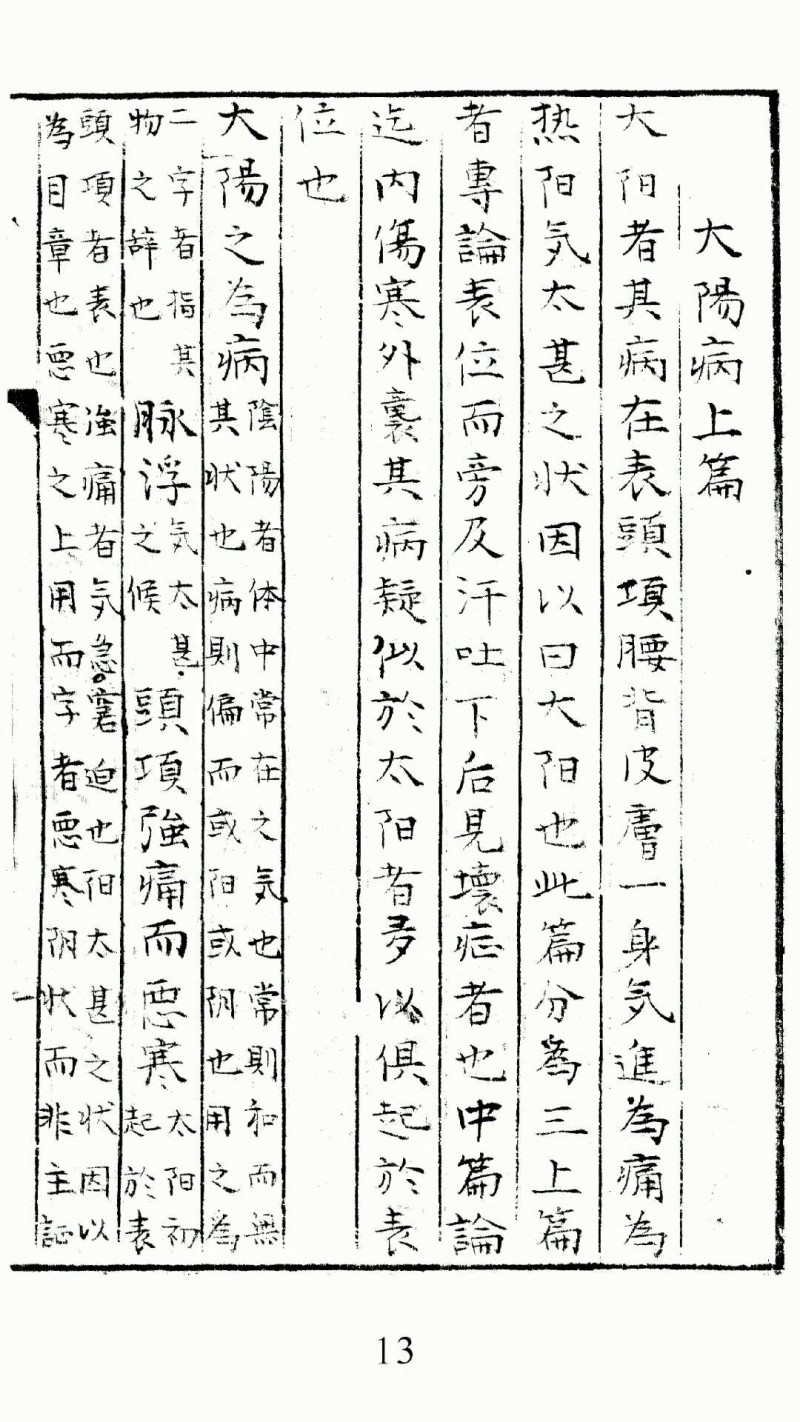 大陽病上篇
大阳者其病在表頭項腰背皮膚一身気進為痛為
热阳気太甚之状因以曰大阳也此篇分為三上篇
者專論表位而旁及汗吐下后見壞症者也中篇論
迄内傷寒外其病疑似於太阳者多以俱起於表
位也
大陽之為病
陰陽者体中常在之気也常則和而無
其状也病則偏而或阳或阴也用之為
二字者指其
物之辞也
脉浮
気太甚
之候
頭項強痛而悪寒
太阳初
起於表
頭項者表也強痛者気急窘迫也阳太甚之状因以
為目章也悪寒之上用而字者悪寒阴状而非主証
13